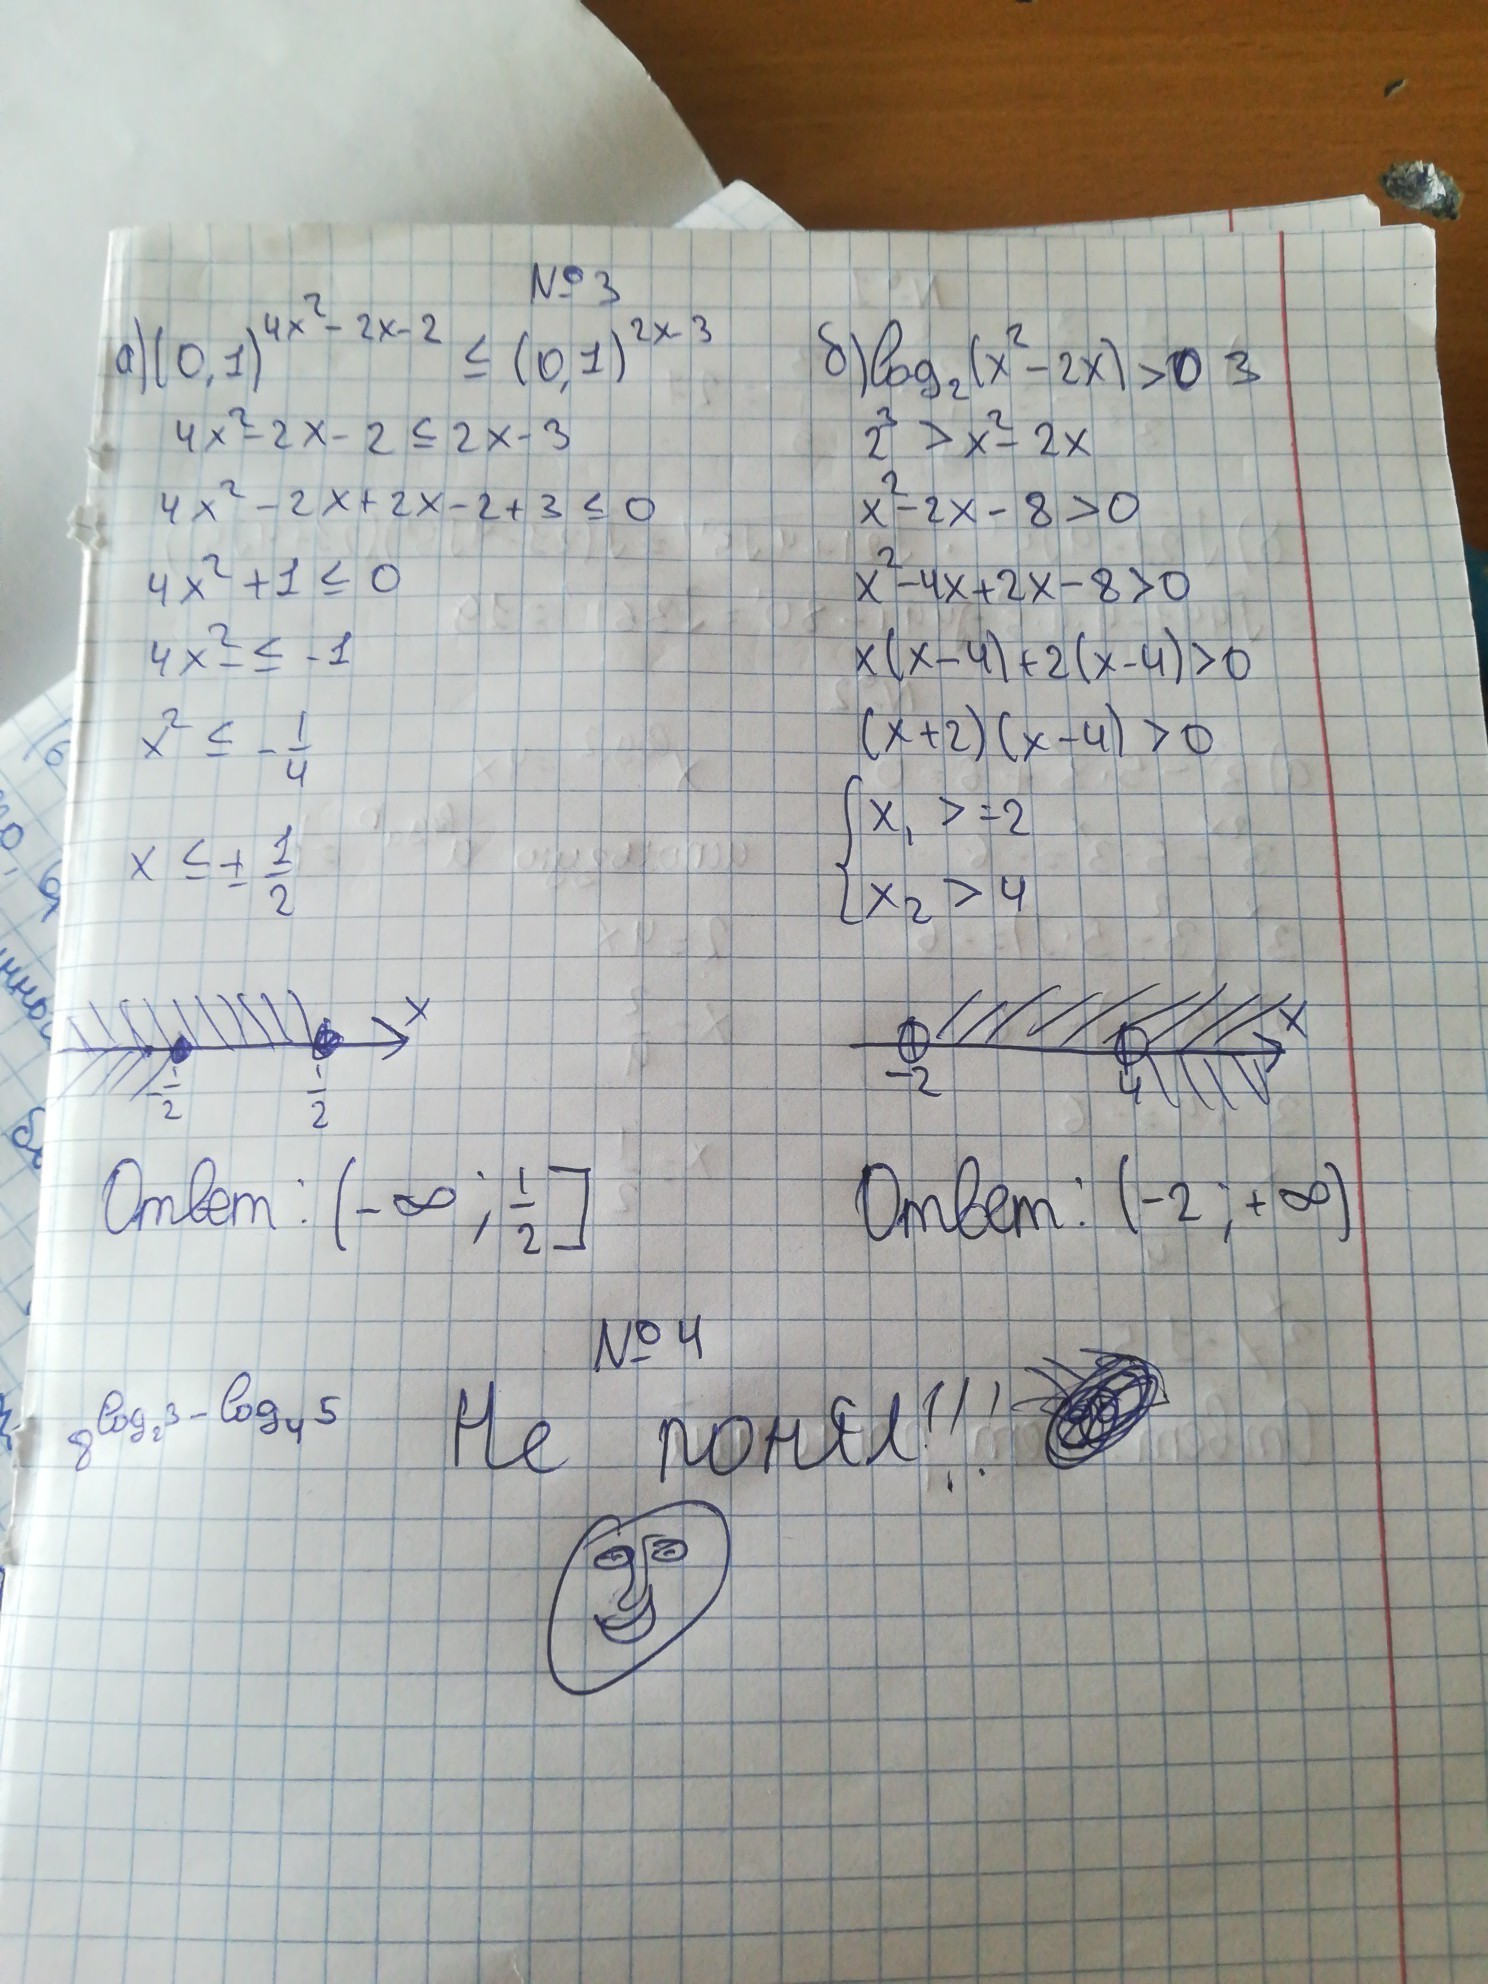 №3
а) (0,1)^{4x²-2x-2} ≤ (0,1)^{2x-3}
4x²-2x-2 ≤ 2x-3
4x²-2x+2x-2+3 ≤ 0
4x²+1 ≤ 0
4x² ≤ -1
x² ≤ -1/4
x ≤ ± 1/2
x
-1/2 1/2
Ответ: (-∞; 1/2]
б) log₂(x²-2x) > 0 3
2³ > x²-2x
x²-2x-8 > 0
x²-4x+2x-8 > 0
x(x-4)+2(x-4) > 0
(x+2)(x-4) > 0
{ x₁ > -2
x₂ > 4
x
-2 4
Ответ: (-2; +∞)
№4
8^{log₂3-log₄5} Не понял!!!